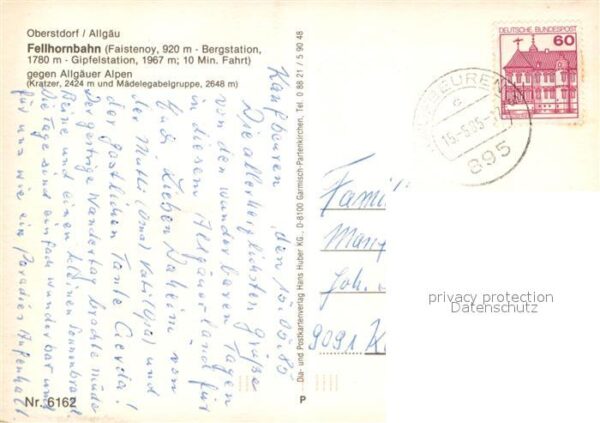 Oberstdorf / Allgäu
Fellhornbahn (Faistenoy, 920 m - Bergstation,
1780 m - Gipfelstation, 1967 m; 10 Min. Fahrt)
gegen Allgäuer Alpen
(Kratzer, 2424 m und Mädelegabelgruppe, 2648 m)
Kaufbeuren, den 15.05.85
Die allerherzlichsten Grüße
von den wunderbaren Tagen
in diesem Allgäuer-Land für
Euch Lieben Daheim von
der Mutti (Oma) Vati (Opa) und
der gastlichen Tante Cierda!
Der gestrige Wandertag brachte müde
Beine und einen kleinen Sonnenbrand
Die Tage sind einfach wunderbar und
für uns wie ein Paradies Aufenhalt
Nr. 6162
Dia- und Postkartenverlag Hans Huber KG., D-8100 Garmisch-Partenkirchen, Tel. 0 88 21 / 5 90 48
P
DEUTSCHE BUNDESPOST
60
BEUREN
15.-5.85-
895
Famili
Joh.
9091 K
privacy protection
Datenschutz